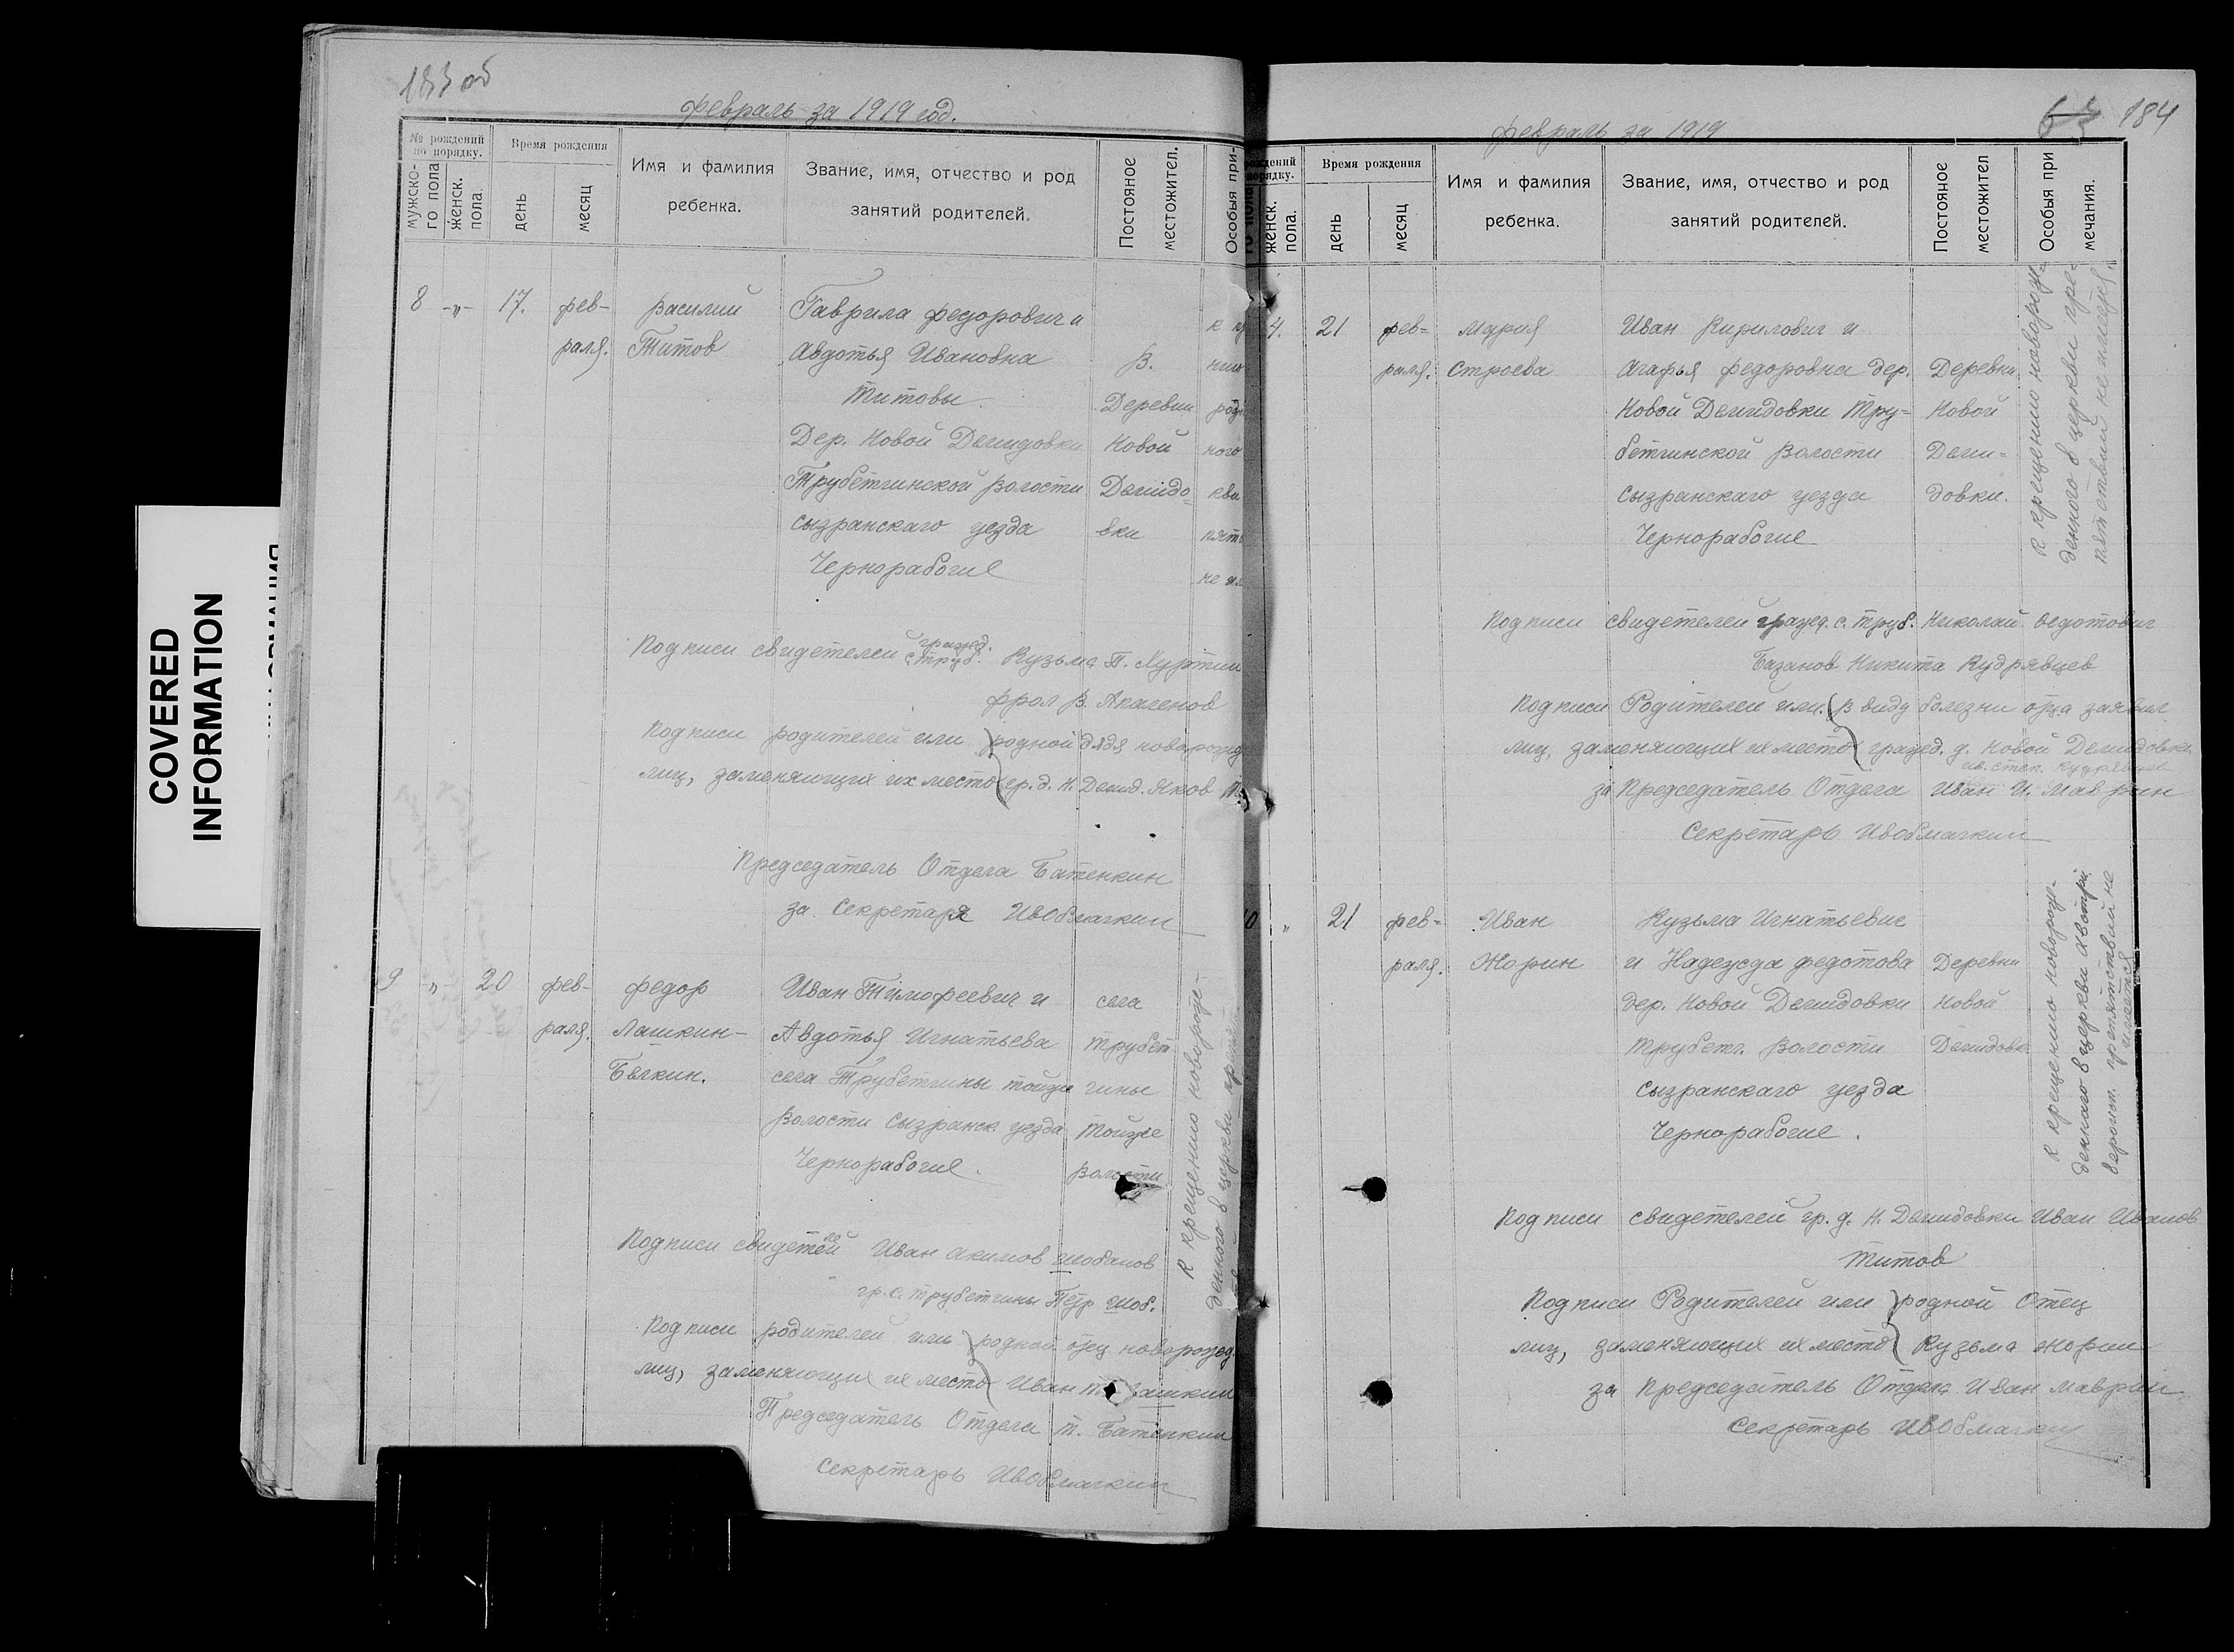 183 об
февраль за 1919 год.
№ рождений
по порядку.
Время рождения
Имя и фамилия
ребенка.
Звание, имя, отчество и род
занятий родителей.
Постояное
местожител.
Особыя при-
мужско-
го пола
женск.
пола.
день
месяц
8 -„- 17. фев- Василий Гаврила федорович и
раля. Титов Авдотья Ивановна В.
Титовы Деревни
Дер. Новой Демидовки Новой
Трубетчинской волости Демидо-
сызранскаго уезда вки
Чернорабочие
гражд.
Подписи свидетелей с. Труб. Кузьма П.
фрол В.
Подписи родителей или родной дядя новорожд
лиц, заменяющих их место гр. д. Н. Демид. Яков
Председатель Отдела Батенкин
за Секретаря
9 „ 20 фев- федор Иван Тимофеевич и села
раля. Лашкин- Авдотья Игнатьева Трубет
Белкин. села Трубетчины тойже чины
волости Сызранск. уезда тойже
Чернорабочие. волости
К крещению новорож-
денного в церкви препят
Подписи свидетелей Иван Акимов
гр. с. Трубетчины Петр
Подписи родителей или родной отец новорожд.
лиц, заменяющих их место Иван
Председатель Отдела Т. Батенкин
Секретарь
184
февраль за 1919
рождений
порядку.
Время рождения
Имя и фамилия
ребенка.
Звание, имя, отчество и род
занятий родителей.
Постояное
местожител
Особыя при
мечания.
женск.
пола.
день
месяц
4. 21 фев- Мария Иван Кирилович и
раля. Строева Агафья федоровна дер. Деревни
Новой Демидовки Тру- Новой
бетчинской волости Деми-
сызранскаго уезда довки.
Чернорабочие
К крещению новорож-
денного в церкви пре-
пятствий не имеется.
Подписи свидетелей гражд. с. Труб. Николай Федотович
Базанов Никита Кудрявцев
Подписи Родителей или В виду болезни отца заявил
лиц, заменяющих их место гражд. д. Новой Демидовки
Кудрявцев
за Председатель Отдела Иван И. Маврин
Секретарь
10 „ 21 фев- Иван Кузьма Игнатьевич
раля. Жорин и Надежда федотова Деревни
дер. Новой Демидовки Новой
Трубетч. волости Демидовк
сызранскаго уезда
Чернорабочие.
К крещению новорож-
деннаго в церкви
препятствий не
имеется
Подписи свидетелей гр. д. Н. Демидовки Иван Иванов
Титов
Подписи Родителей или родной Отец
лиц, заменяющих их место Кузьма Жорин
за Председатель Отдела Иван Маврин
Секретарь
COVERED
INFORMATION